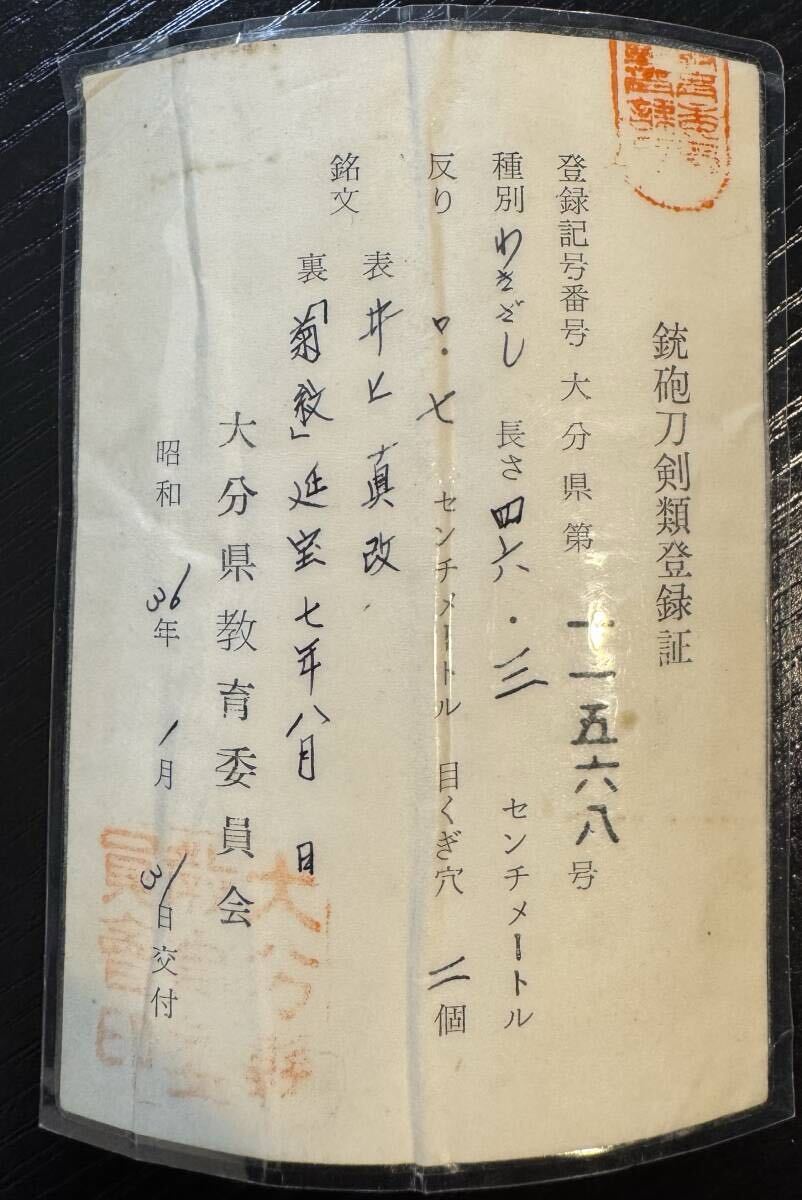 銃砲刀剣類登録証
登録記号番号 大分県第 一一五六八号
種別 わきざし 長さ 四六・三 センチメートル
反り 〇・七 センチメートル 目くぎ穴 二個
銘文 表 井上真改
裏「菊紋」延宝七年八月 日
大分県教育委員会
昭和 36年 1月 31日交付